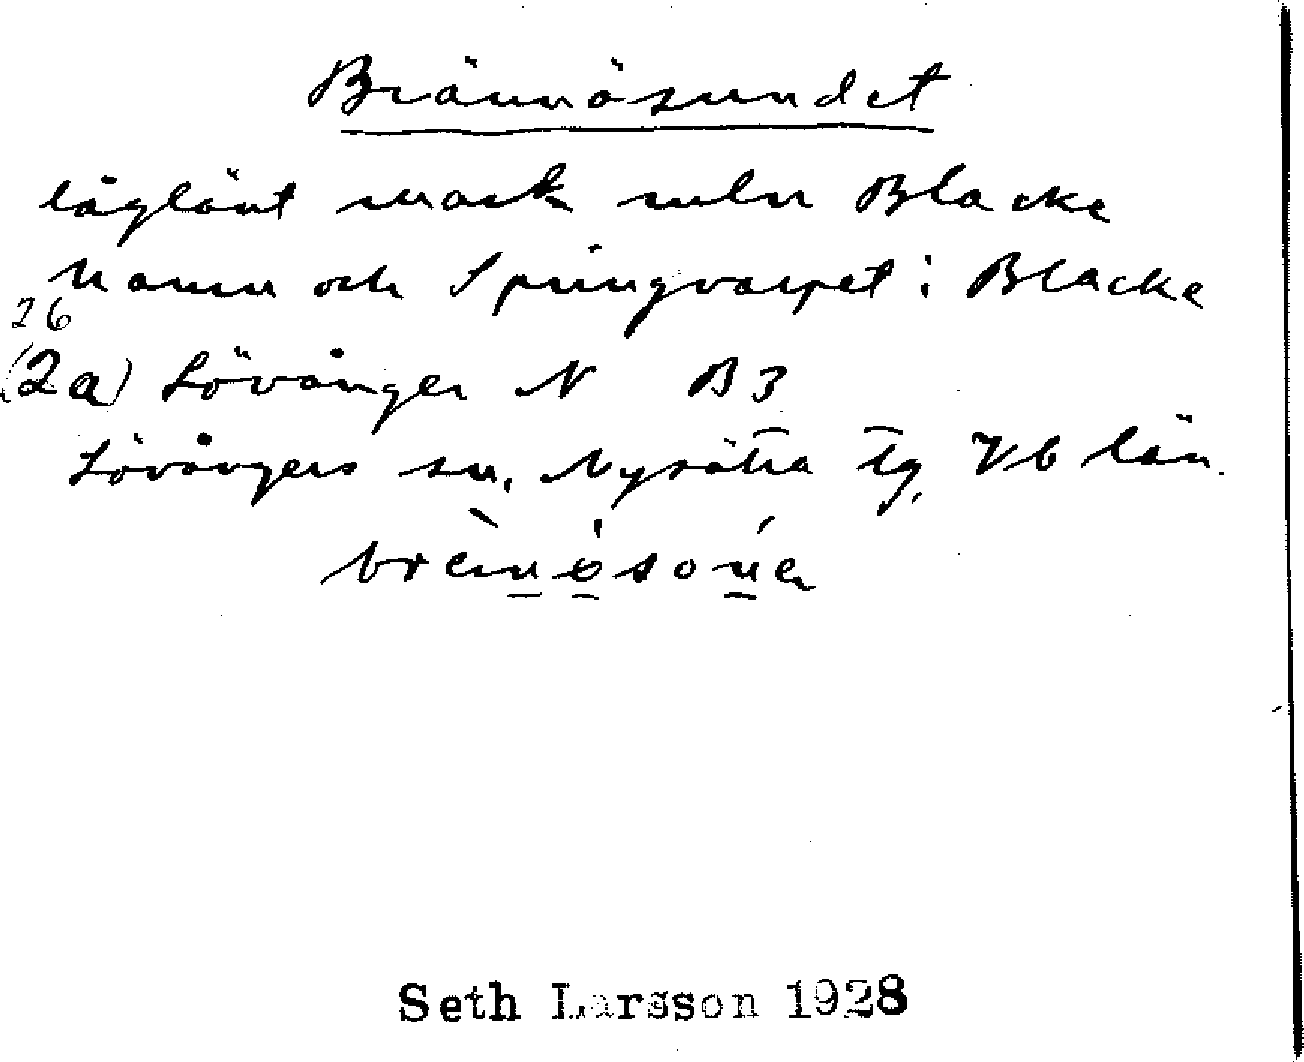 Brännösundet
låglänt mark mln Blacke
hamn och Springvarpet i Blacke
26
(2a) Lövånger N B3
Lövångers sn, Nysätra tg, Vb län.
Seth Larsson 1928